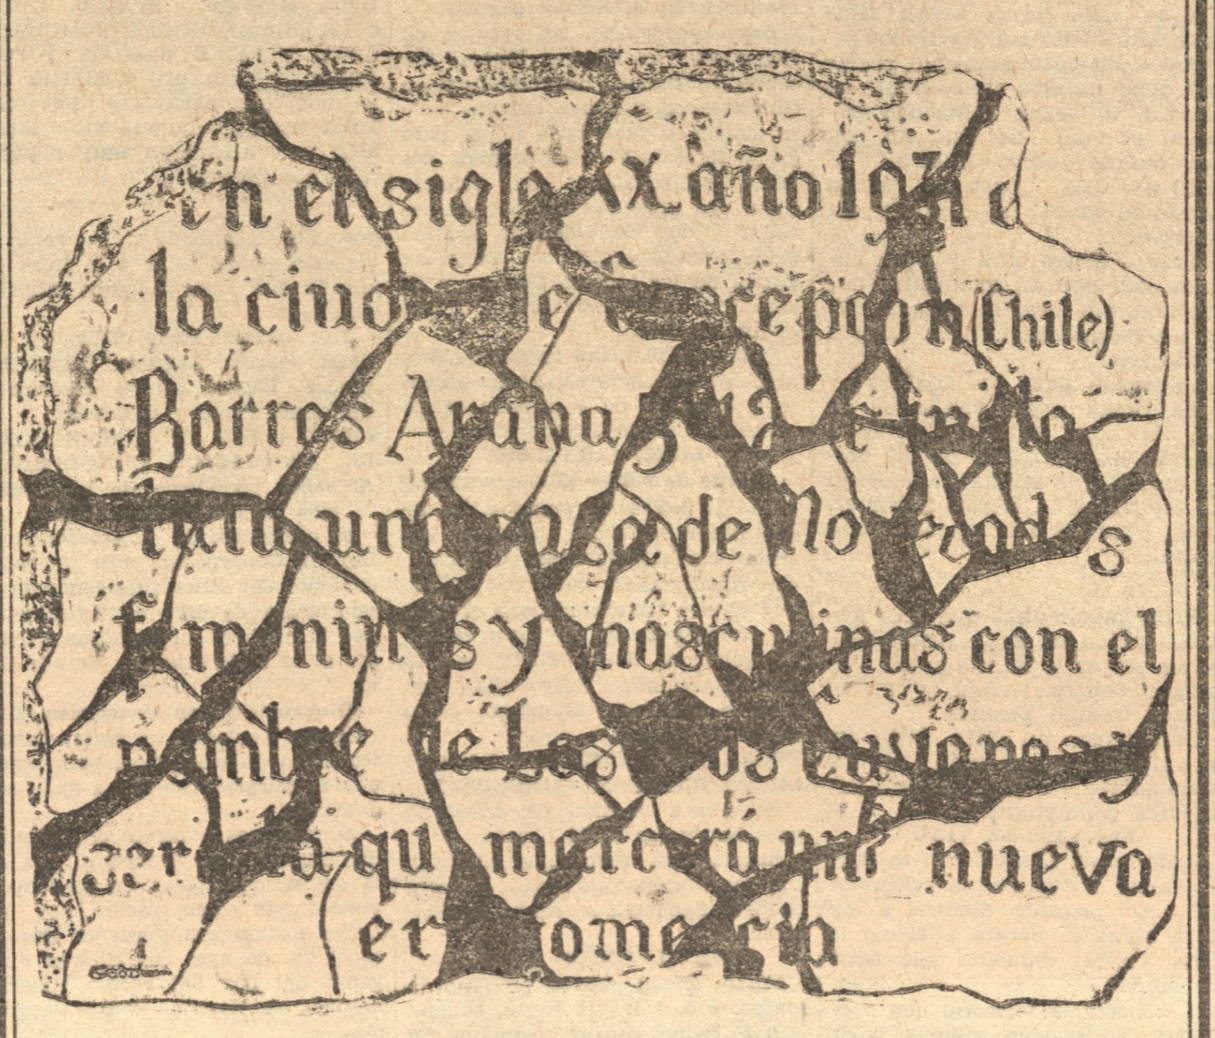 en el siglo XX año
la ciudad de Concepcion (Chile)
Barros Arana se insta
lara una casa de Novedades
femeninas y masculinas con el
nombre de Los y
sera la que marcará una nueva
era comercial